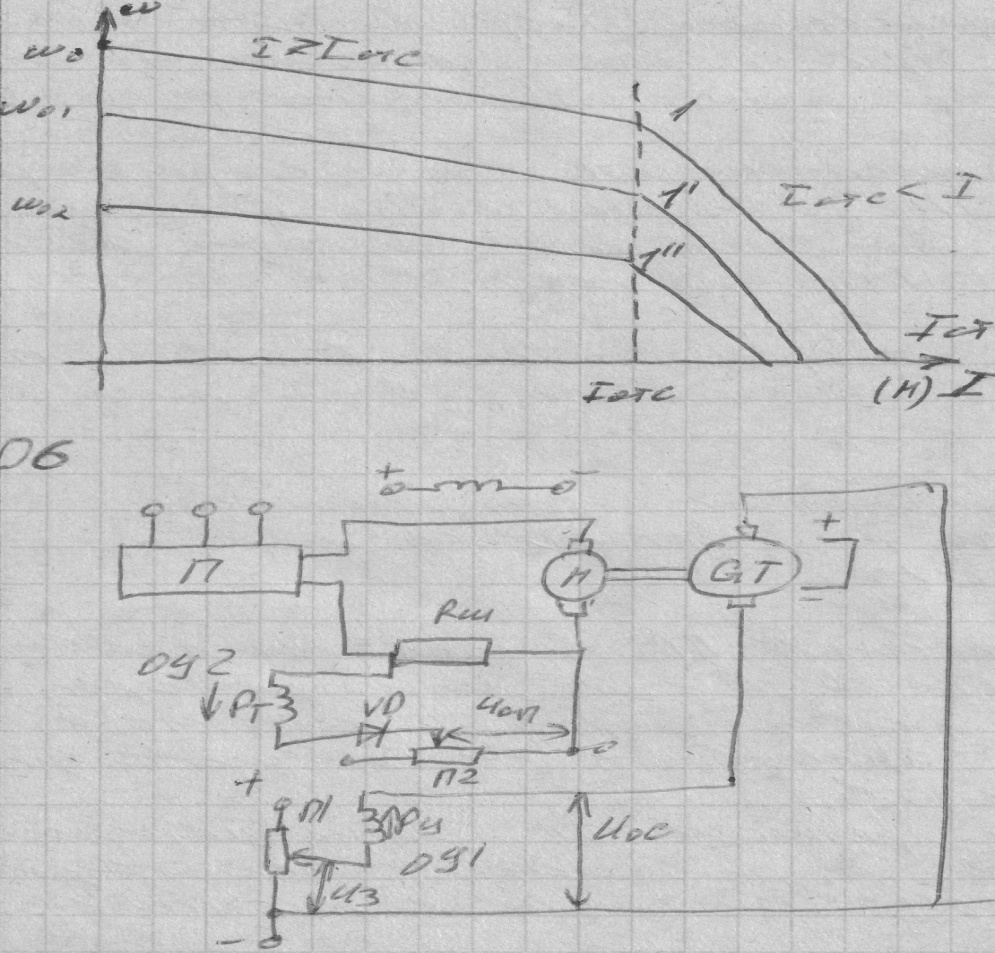 ω
ω₀
I ≥ Iотс
ω₀₁
1
ω₀₂
1'
Iотс < I
1''
Iст
Iотс
(М) I
06
+ -
П
М
GT
+
-
Rш
ОУ2
Рт
VD
Uоп
П2
+
П1
Ру
ОУ1
Uос
Uз
-